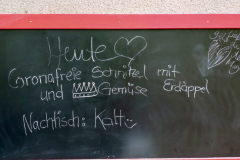 Heute
Gronafreie Schnitzel mit
und Gemüse Erdäppel
Nachtisch: Kalt